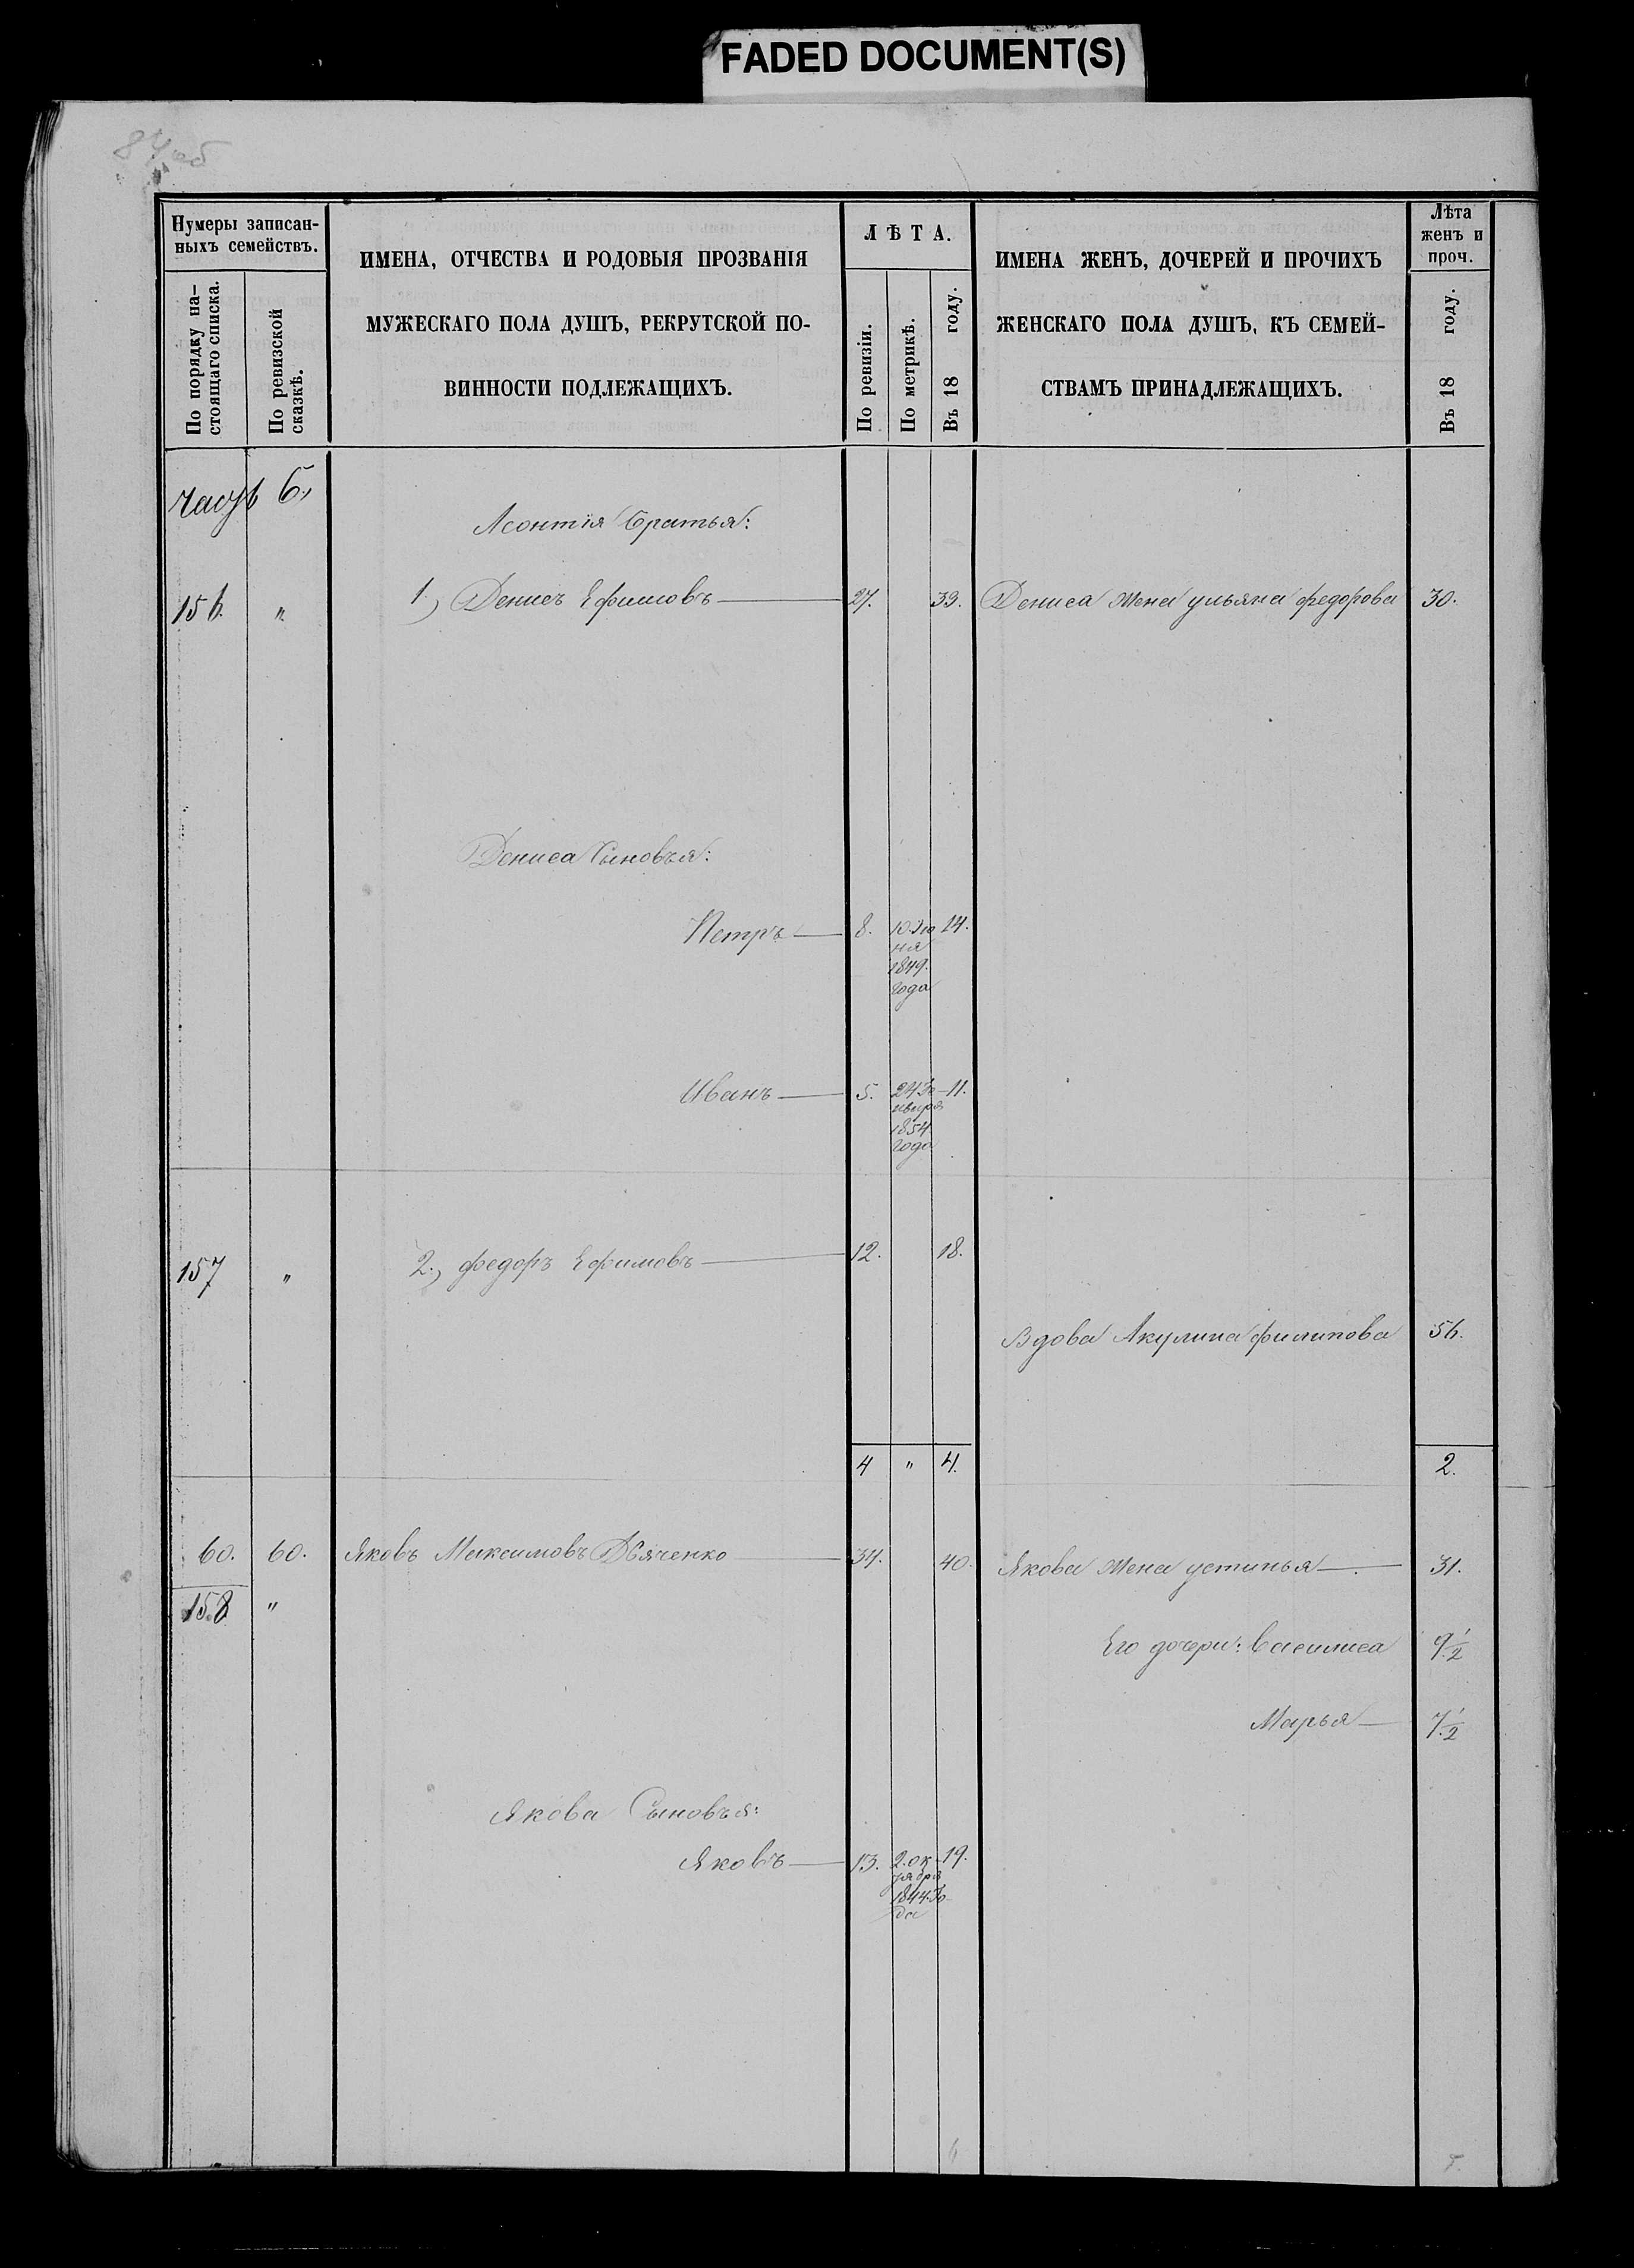 FADED DOCUMENT(S)
84 об
Нумеры записан-
ныхъ семействъ.
По порядку на-
стоящаго списка.
По ревизской
сказкѣ.
ИМЕНА, ОТЧЕСТВА И РОДОВЫЯ ПРОЗВАНІЯ
МУЖЕСКАГО ПОЛА ДУШЪ, РЕКРУТСКОЙ ПО-
ВИННОСТИ ПОДЛЕЖАЩИХЪ.
ЛѢТА.
По ревизіи.
По метрикѣ.
Въ 18 году.
ИМЕНА ЖЕНЪ, ДОЧЕРЕЙ И ПРОЧИХЪ
ЖЕНСКАГО ПОЛА ДУШЪ, КЪ СЕМЕЙ-
СТВАМЪ ПРИНАДЛЕЖАЩИХЪ.
Лѣта
женъ и
проч.
Въ 18 году.
6.,
Леонтія братья:
156. " 1., Денисъ Ефимовъ 27. 33. Дениса жена ульяна федорова 30.
Дениса Сыновья:
Петръ 8. 10. Ію 14.
ня
1849.
года
Иванъ 5. 24 Ян 11.
варя
1854
года
157 " 2., федоръ Ефимовъ 12. 18.
Вдова Акулина филипова 56.
4 " 4. 2.
60. 60. Яковъ Максимовъ Дьяченко 34. 40. Якова жена устинья 31.
158 "
Его дочери: Василиса 9 1/2
Марья 7 1/2
Якова Сыновья:
Яковъ 13. 2. ок 19.
тября
1844 го
да